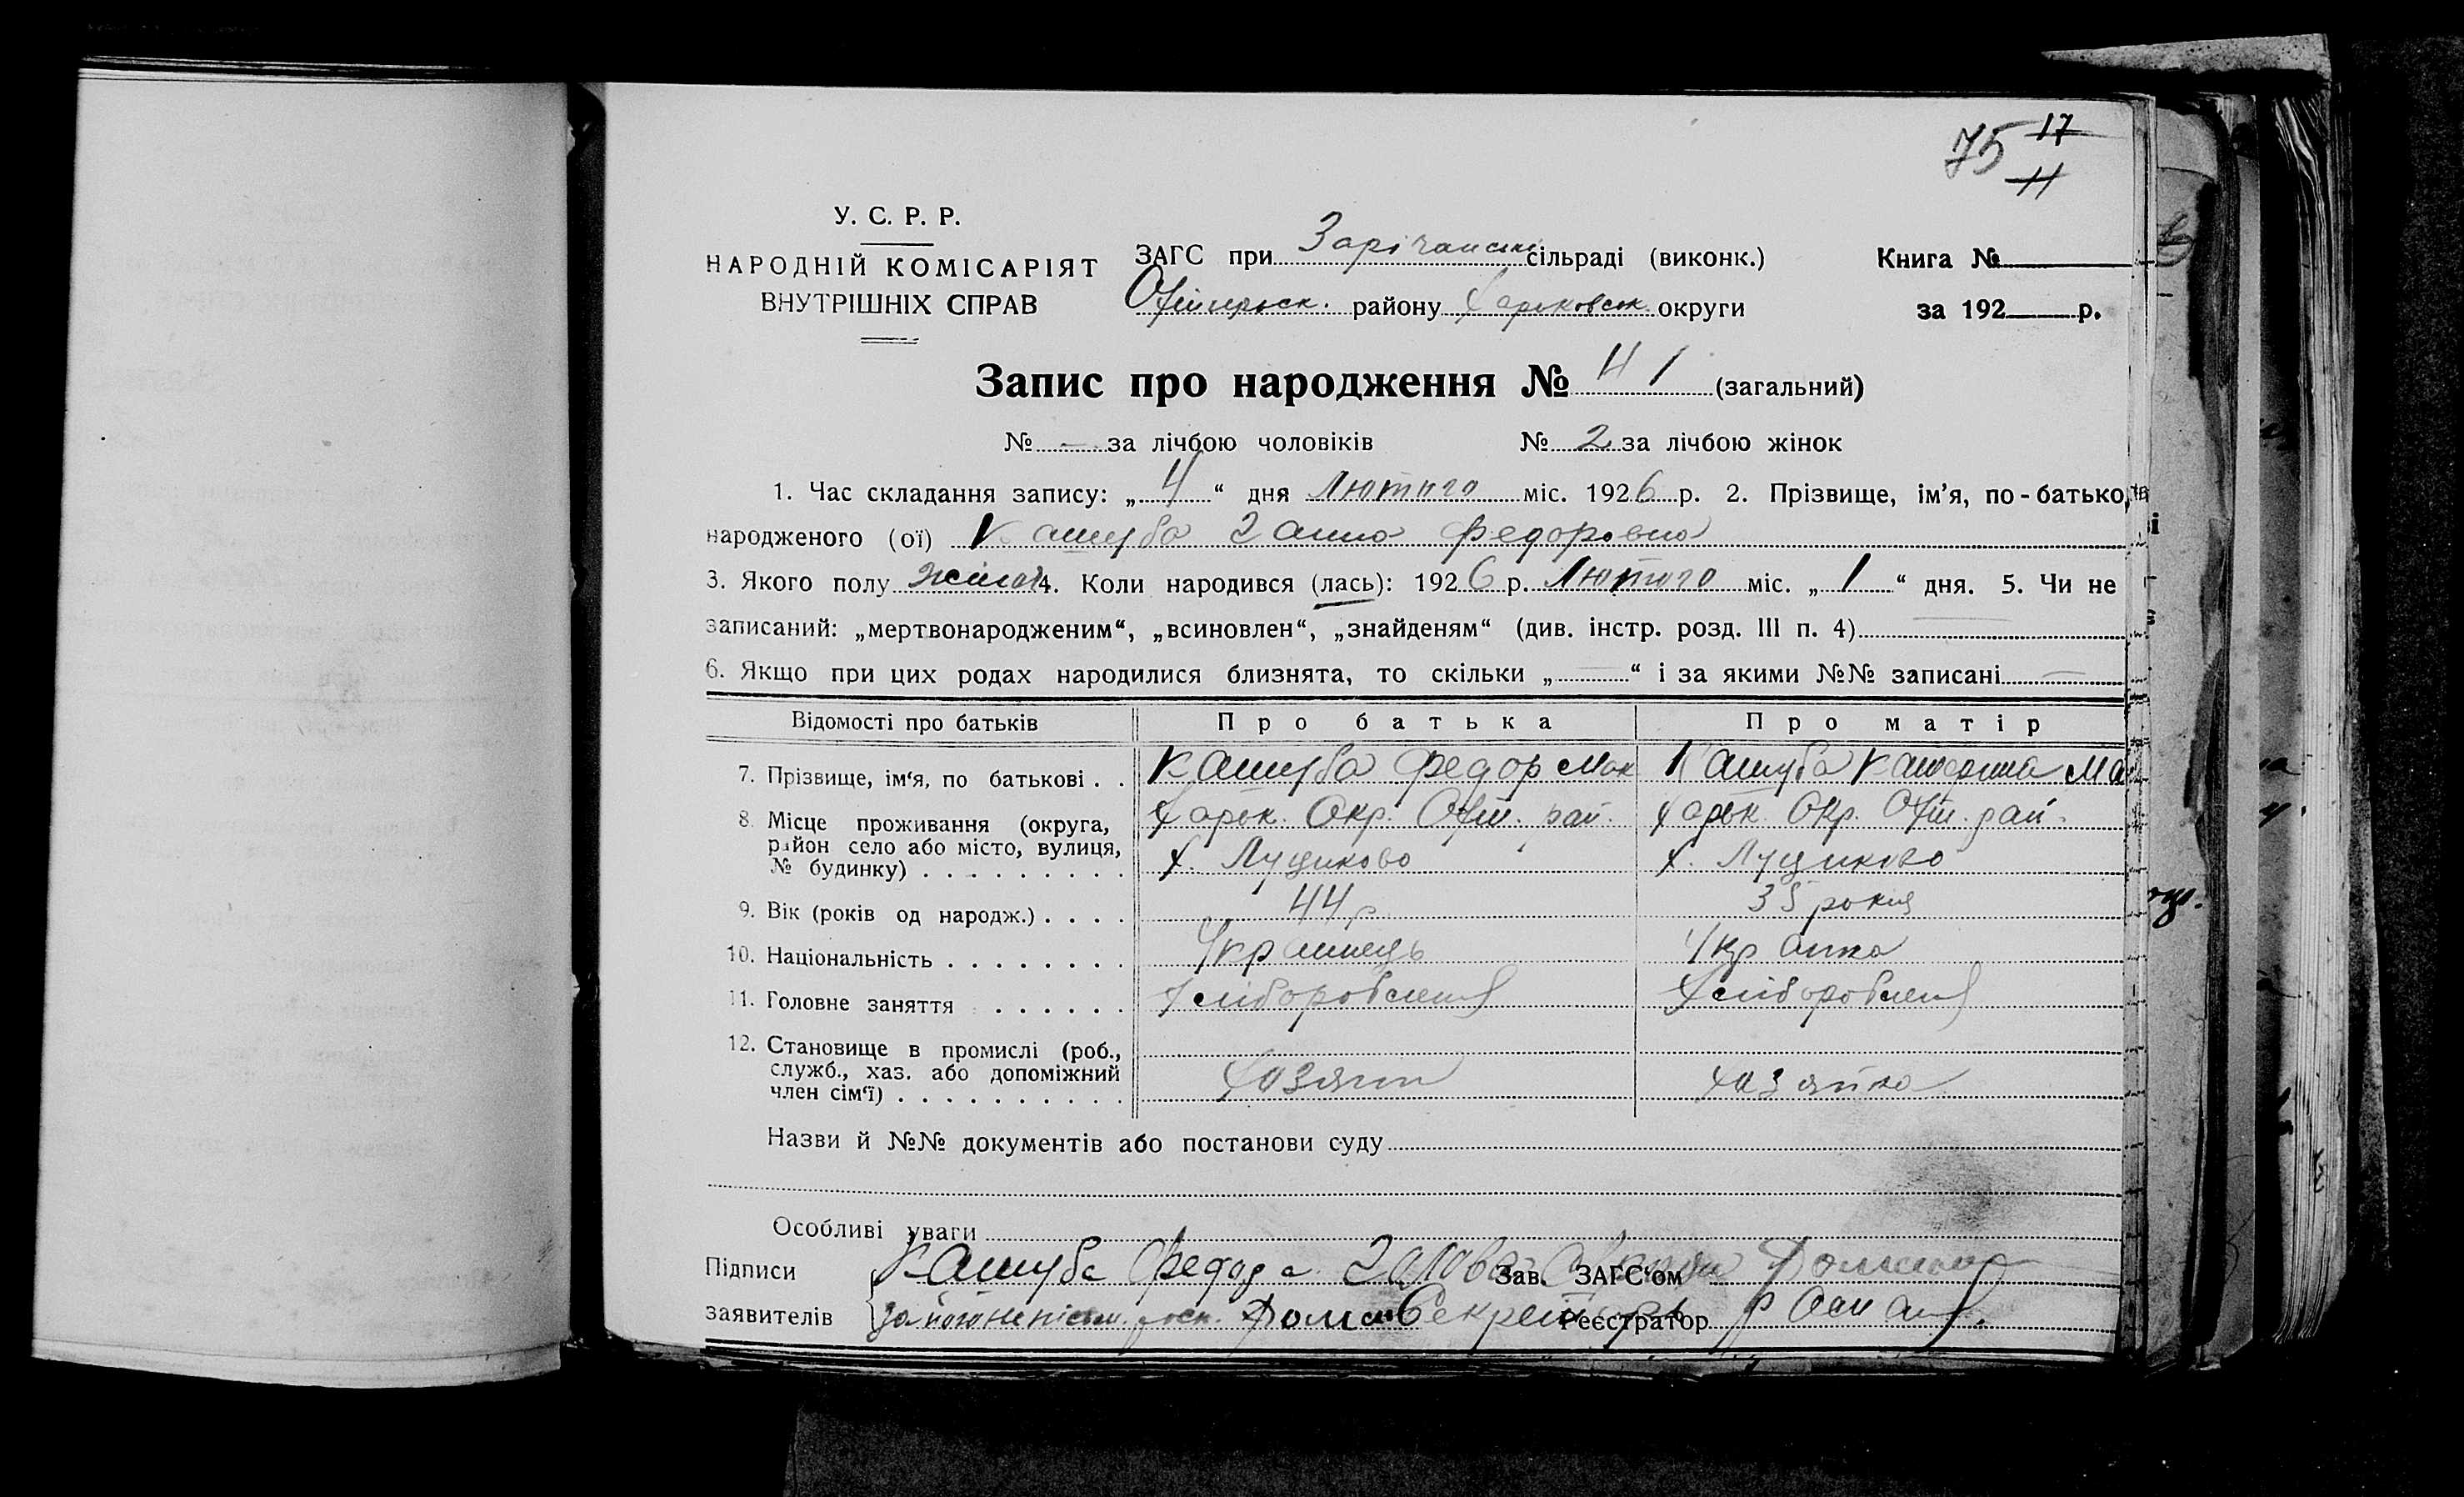 75 17
11
У. С. Р. Р.
НАРОДНІЙ КОМІСАРІЯТ
ВНУТРІШНІХ СПРАВ
ЗАГС при Зарічанськ сільраді (виконк.)
району Харьковськ. округи
Книга №
за 192 р.
Запис про народження № 41 (загальний)
№ — за лічбою чоловіків № 2 за лічбою жінок
1. Час складання запису: „ 4 “ дня Лютого міс. 1926 р. 2. Прізвище, ім’я, по-батько,
народженого (ої) Кашуба Ганна Федоровна
3. Якого полу 4. Коли народився (лась): 1926 р. Лютого міс. „ 1 “ дня. 5. Чи не
записаний: „мертвонародженим“, „всиновлен“, „знайденям“ (див. інстр. розд. III п. 4) —
6. Якщо при цих родах народилися близнята, то скільки „ — “ і за якими №№ записані —
Відомості про батьків Про батька Про матір
7. Прізвище, ім‘я, по батькові . . Кашуба Федор Мак Кашуба Катерина Ма
8. Місце проживання (округа, Харьк. Окр. рай. Харьк. Окр. рай.
район село або місто, вулиця,
№ будинку) . . . . . . . . . х. Луциково х. Луциково
9. Вік (років од народж.) . . . . 44 р 35 років
10. Національність . . . . . . . . Українець Укр аинка
11. Головне заняття . . . . . . Хліборобленя Хліборобленя
12. Становище в промислі (роб.,
служб., хаз. або допоміжний
член сім‘ї) . . . . . . . . . . Хозяин хозяйка
Назви й №№ документів або постанови суду
Особливі уваги
Підписи Кашуба Федор а Голова Зав. ЗАГС‘ом
заявителів Секретарь Реєстратор